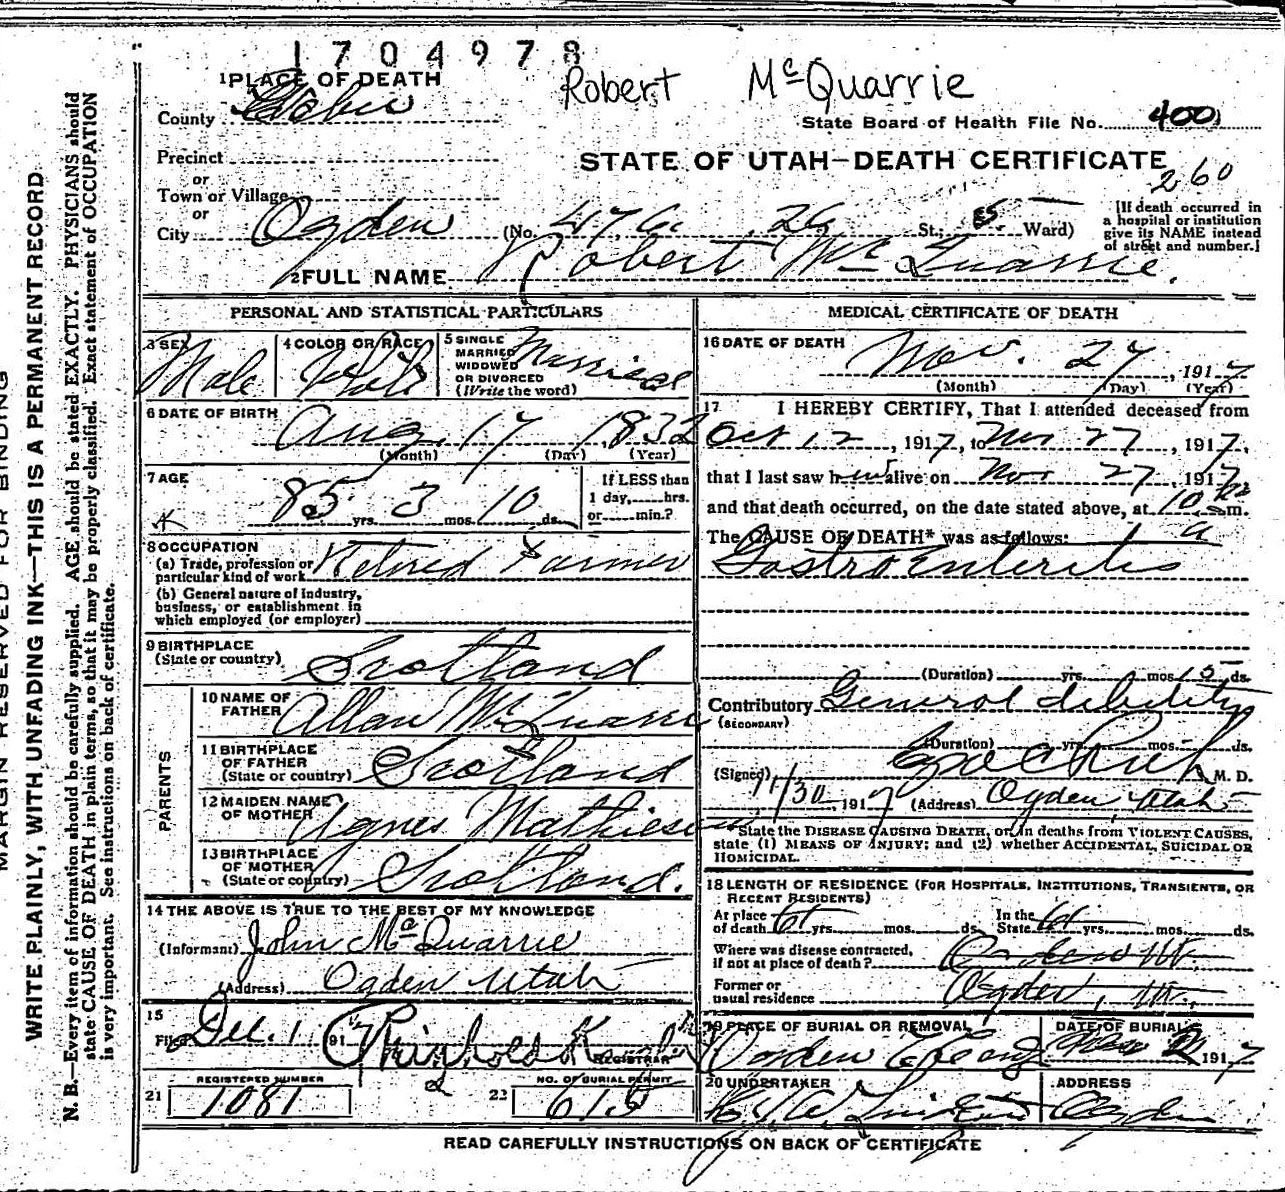 1704978
Robert McQuarrie
1 PLACE OF DEATH
County Weber
State Board of Health File No. 400
Precinct
or
Town or Village
or
STATE OF UTAH—DEATH CERTIFICATE
260
City Ogden (No. 476. 26 St.; 5 Ward)
[If death occurred in
a hospital or institution
give its NAME instead
of street and number.]
2 FULL NAME Robert McQuarrie.
MARGIN RESERVED FOR BINDING
WRITE PLAINLY, WITH UNFADING INK—THIS IS A PERMANENT RECORD
N. B.—Every item of information should be carefully supplied. AGE should be stated EXACTLY. PHYSICIANS should
state CAUSE OF DEATH in plain terms, so that it may be properly classified. Exact statement of OCCUPATION
is very important. See instructions on back of certificate.
PERSONAL AND STATISTICAL PARTICULARS
3 SEX Male
4 COLOR OR RACE White
5 SINGLE
MARRIED
WIDOWED
OR DIVORCED
(Write the word) Married
6 DATE OF BIRTH
Aug. 17 1832
(Month) (Day) (Year)
7 AGE
85 yrs. 3 mos. 10 ds.
If LESS than
1 day, hrs.
or min.?
8 OCCUPATION
(a) Trade, profession or
particular kind of work Retired Farmer
(b) General nature of industry,
business, or establishment in
which employed (or employer)
9 BIRTHPLACE
(State or country) Scotland
PARENTS
10 NAME OF
FATHER Allan McQuarrie
11 BIRTHPLACE
OF FATHER
(State or country) Scotland
12 MAIDEN NAME
OF MOTHER Agnes Mathieson
13 BIRTHPLACE
OF MOTHER
(State or country) Scotland.
14 THE ABOVE IS TRUE TO THE BEST OF MY KNOWLEDGE
(Informant) John McQuarrie
(Address) Ogden Utah
15
Filed Dec. 1 191
REGISTRAR
21 REGISTERED NUMBER
1081
22 NO. OF BURIAL PERMIT
615
MEDICAL CERTIFICATE OF DEATH
16 DATE OF DEATH
Nov. 27, 1917
(Month) (Day) (Year)
17 I HEREBY CERTIFY, That I attended deceased from
Oct 12, 1917, to Nov 27, 1917,
that I last saw him alive on Nov 27, 1917
and that death occurred, on the date stated above, at 10 m.
The CAUSE OF DEATH* was as follows:
Gastro Enteritis
(Duration) yrs. mos. 15 ds.
Contributory General debility
(SECONDARY)
(Duration) yrs. mos. ds.
(Signed) M. D.
11/30, 1917 (Address) Ogden, Utah
*State the DISEASE CAUSING DEATH, or, in deaths from VIOLENT CAUSES,
state (1) MEANS OF INJURY; and (2) whether ACCIDENTAL, SUICIDAL OR
HOMICIDAL.
18 LENGTH OF RESIDENCE (FOR HOSPITALS, INSTITUTIONS, TRANSIENTS, OR
RECENT RESIDENTS)
At place
of death yrs. mos. ds.
In the
State yrs. mos. ds.
Where was disease contracted,
if not at place of death? Ogden Ut.
Former or
usual residence Ogden, Ut.
19 PLACE OF BURIAL OR REMOVAL
Ogden
DATE OF BURIAL
1917
20 UNDERTAKER
ADDRESS
Ogden
READ CAREFULLY INSTRUCTIONS ON BACK OF CERTIFICATE